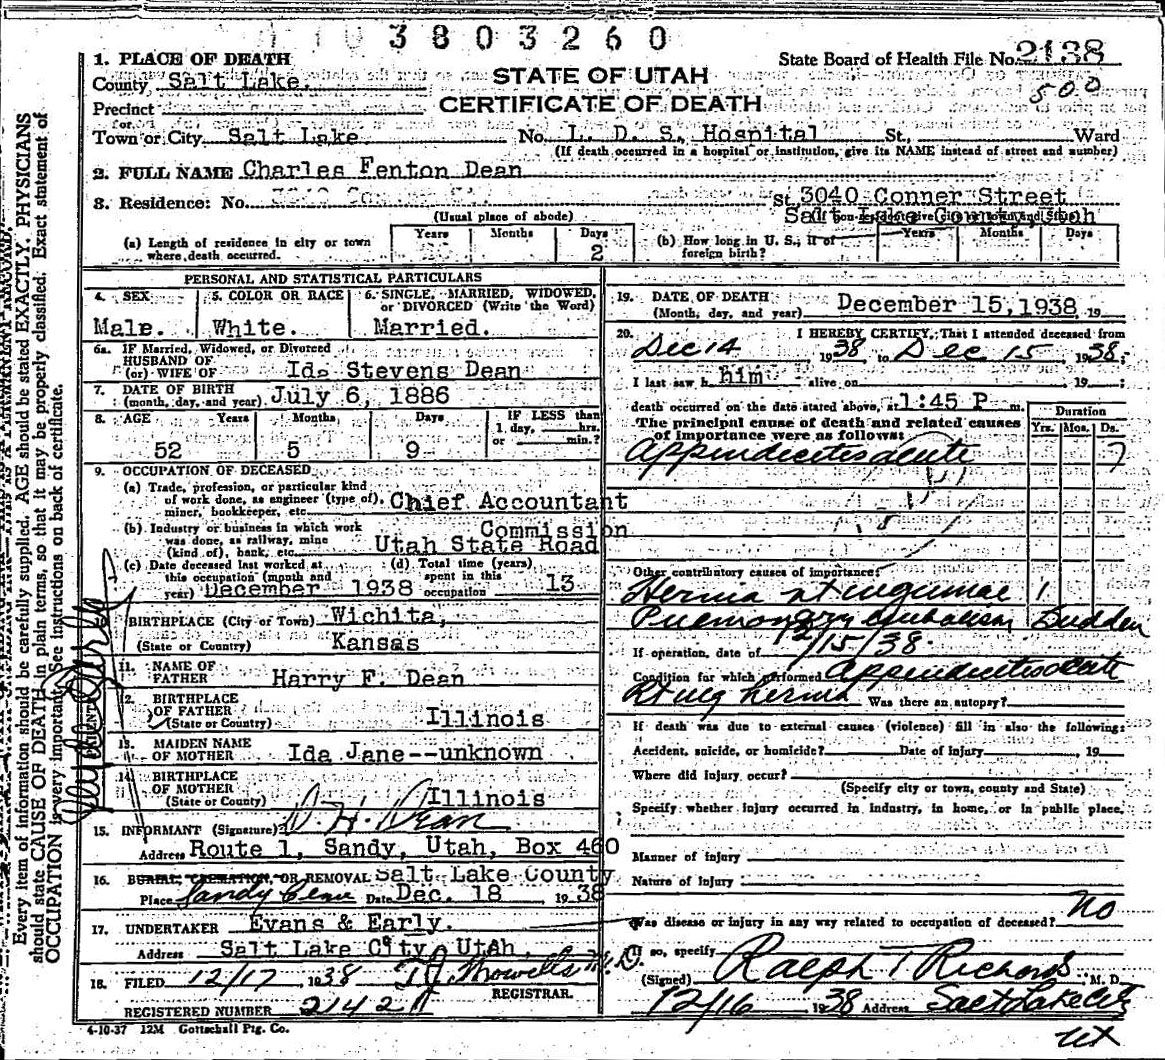 3803260
1. PLACE OF DEATH
State Board of Health File No. 2138
County Salt Lake.
STATE OF UTAH
500
Precinct
CERTIFICATE OF DEATH
Town or City Salt Lake No. L. D. S. Hospital St., Ward
(If death occurred in a hospital or institution, give its NAME instead of street and number)
2. FULL NAME Charles Fenton Dean
3. Residence: No. St. 3040 Conner Street
Salt Lake County, Utah
(Usual place of abode)
(a) Length of residence in city or town where death occurred. Years Months Days 2
(b) How long in U. S., if of foreign birth? Years Months Days
PERSONAL AND STATISTICAL PARTICULARS
4. SEX Male.
5. COLOR OR RACE White.
6. SINGLE, MARRIED, WIDOWED, or DIVORCED (Write the Word) Married.
6a. IF Married, Widowed, or Divorced
HUSBAND OF
(or) WIFE OF Ida Stevens Dean
7. DATE OF BIRTH
(month, day, and year) July 6, 1886
8. AGE Years Months Days IF LESS than
1 day, hrs.
or min.?
52 5 9
9. OCCUPATION OF DECEASED
(a) Trade, profession, or particular kind
of work done, as engineer (type of),
miner, bookkeeper, etc. Chief Accountant
(b) Industry or business in which work
was done, as railway, mine
(kind of), bank, etc. Utah State Road
Commission
(c) Date deceased last worked at
this occupation (month and
year) December 1938
(d) Total time (years)
spent in this
occupation 13
10. BIRTHPLACE (City or Town) Wichita,
(State or Country) Kansas
11. NAME OF
FATHER Harry F. Dean
12. BIRTHPLACE
OF FATHER
(State or Country) Illinois
13. MAIDEN NAME
OF MOTHER Ida Jane--unknown
14. BIRTHPLACE
OF MOTHER
(State or Country) Illinois
15. INFORMANT (Signature) D. H. Dean
Address Route 1, Sandy, Utah, Box 460
16. BURIAL, CREMATION, OR REMOVAL Salt Lake County
Place Sandy Cem Date Dec. 18 1938
17. UNDERTAKER Evans & Early.
Address Salt Lake City, Utah.
18. FILED 12/17 1938 M. D.
REGISTRAR.
REGISTERED NUMBER 2142
4-10-37 12M Gottschall Ptg. Co.
19. DATE OF DEATH
(Month, day, and year) December 15, 1938 19
20. I HEREBY CERTIFY, That I attended deceased from
Dec 14 1938 to Dec 15 1938;
I last saw him alive on 19 ;
death occurred on the date stated above, at 1:45 P m.
The principal cause of death and related causes
of importance were as follows:
Duration
Yrs. Mos. Ds.
Appendicitis acute 7
Other contributory causes of importance:
Hernia rt inguinal 1
Pulmonary embolism Sudden
If operation, date of 12/15/38.
Condition for which performed Appendicitis acute
Rt ing hernia Was there an autopsy?
If death was due to external causes (violence) fill in also the following:
Accident, suicide, or homicide? Date of injury , 19
Where did injury occur?
(Specify city or town, county and State)
Specify whether injury occurred in industry, in home, or in public place.
Manner of injury
Nature of injury
Was disease or injury in any way related to occupation of deceased? no
so, specify
(Signed) Ralph T Richards M. D.
12/16 1938 Address Salt Lake City
ut
Every item of information should be carefully supplied. AGE should be stated EXACTLY. PHYSICIANS
should state CAUSE OF DEATH in plain terms, so that it may be properly classified. Exact statement of
OCCUPATION is very important. See instructions on back of certificate.